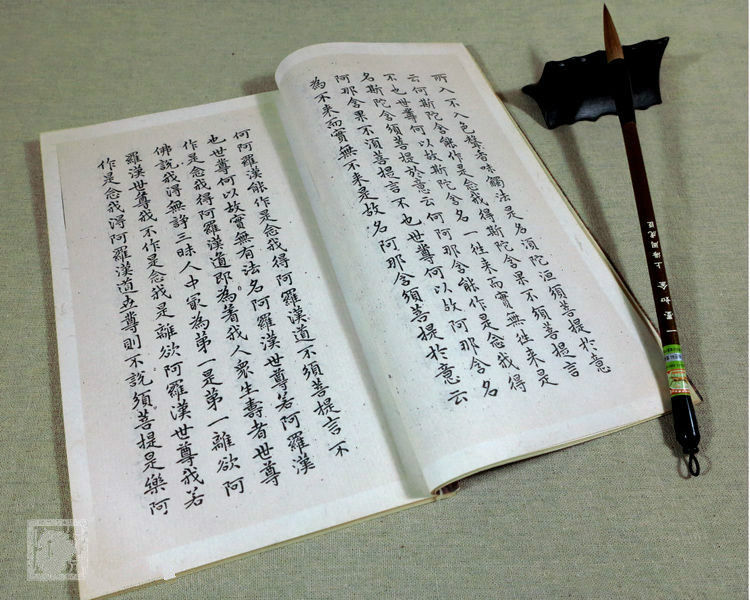 所入不入色聲香味觸法是名須陀洹須菩提於意
云何斯陀含能作是念我得斯陀含果不須菩提言
不也世尊何以故斯陀含名一往來而實無往來是
名斯陀含須菩提於意云何阿那含能作是念我得
阿那含果不須菩提言不也世尊何以故阿那含名
為不來而實無不來是故名阿那含須菩提於意云
何阿羅漢能作是念我得阿羅漢道不須菩提言不
也世尊何以故實無有法名阿羅漢世尊若阿羅漢
作是念我得阿羅漢道即為著我人衆生壽者世尊
佛說我得無諍三昧人中最為第一是第一離欲阿
羅漢世尊我不作是念我是離欲阿羅漢世尊我若
作是念我得阿羅漢道世尊則不說須菩提是樂阿
一墨如金 上海周虎臣